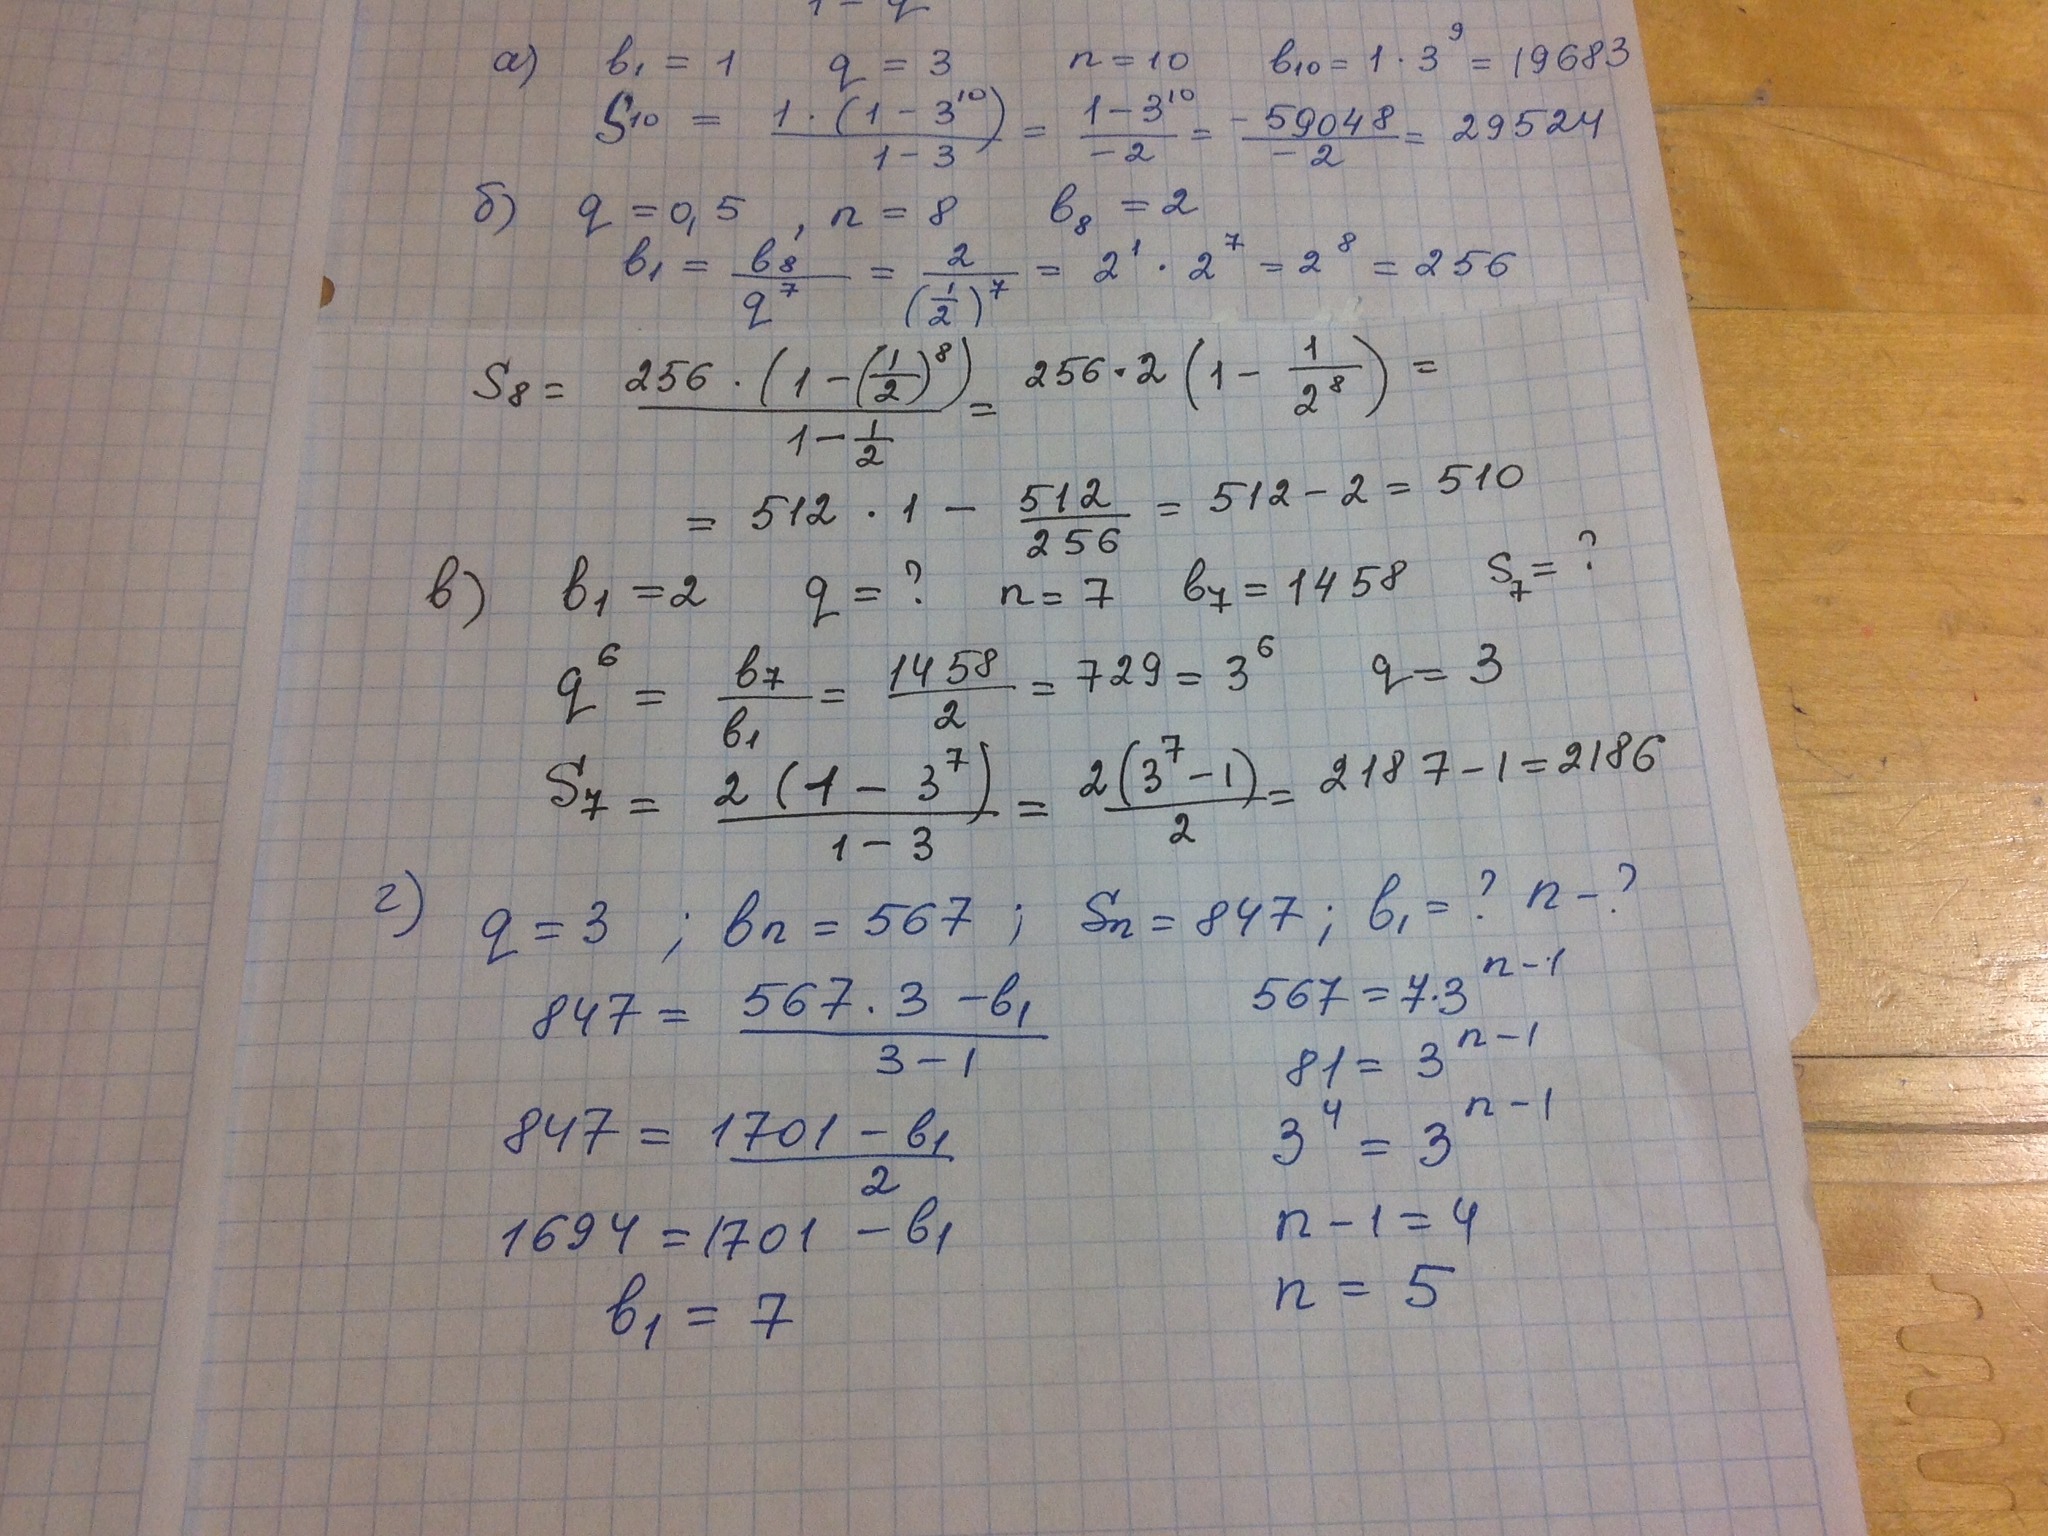 1 - q
а) b₁ = 1 q = 3 n = 10 b₁₀ = 1 · 3⁹ = 19683
S₁₀ = (1 · (1 - 3¹⁰))/(1 - 3) = (1 - 3¹⁰)/(-2) = (-59048)/(-2) = 29524
б) q = 0,5 , n = 8 b₈ = 2
b₁ = b₈/q⁷ = 2/(1/2)⁷ = 2¹ · 2⁷ = 2⁸ = 256
S₈ = (256 · (1 - (1/2)⁸))/(1 - 1/2) = 256 · 2 (1 - 1/2⁸) =
= 512 · 1 - 512/256 = 512 - 2 = 510
в) b₁ = 2 q = ? n = 7 b₇ = 1458 S₇ = ?
q⁶ = b₇/b₁ = 1458/2 = 729 = 3⁶ q = 3
S₇ = (2 (1 - 3⁷))/(1 - 3) = (2(3⁷ - 1))/2 = 2187 - 1 = 2186
г) q = 3 ; bn = 567 ; Sn = 847 ; b₁ = ? n - ?
847 = (567 · 3 - b₁)/(3 - 1) 567 = 7·3ⁿ⁻¹
81 = 3ⁿ⁻¹
847 = (1701 - b₁)/2 3⁴ = 3ⁿ⁻¹
1694 = 1701 - b₁ n - 1 = 4
b₁ = 7 n = 5